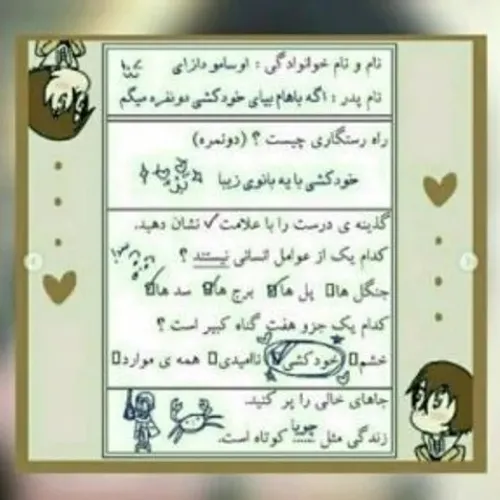 نام و نام خوانوادگی : اوسامو دازای
نام پدر : اگه باهام بیای خودکشی دونفره میگم
راه رستگاری چیست ؟ (دونمره)
خودکشی با یه بانوی زیبا
گذینه ی درست را با علامت ✓ نشان دهید.
کدام یک از عوامل انسانی نیستند ؟
جنگل ها پل ها برج ها سد ها
کدام یک جزو هفت گناه کبیر است ؟
خشم خودکشی ناامیدی همه ی موارد
جاهای خالی را پر کنید.
زندگی مثل چویا کوتاه است.